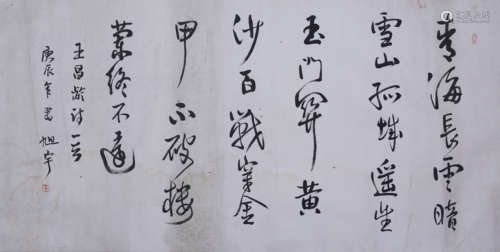 青海長雲暗
雪山孤城遥望
玉門關黄
沙百戰穿金
甲不破樓
蘭終不還
王昌齡詩一首
庚辰年書旭宇